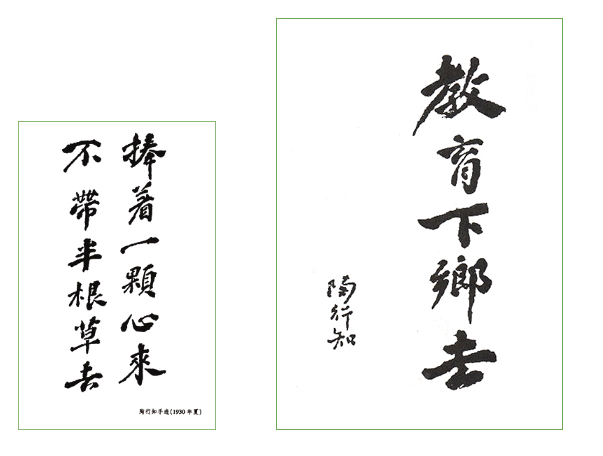 捧着一顆心來
不帶半根草去
陶行知手迹(1930年夏)
教育下鄉去
陶行知